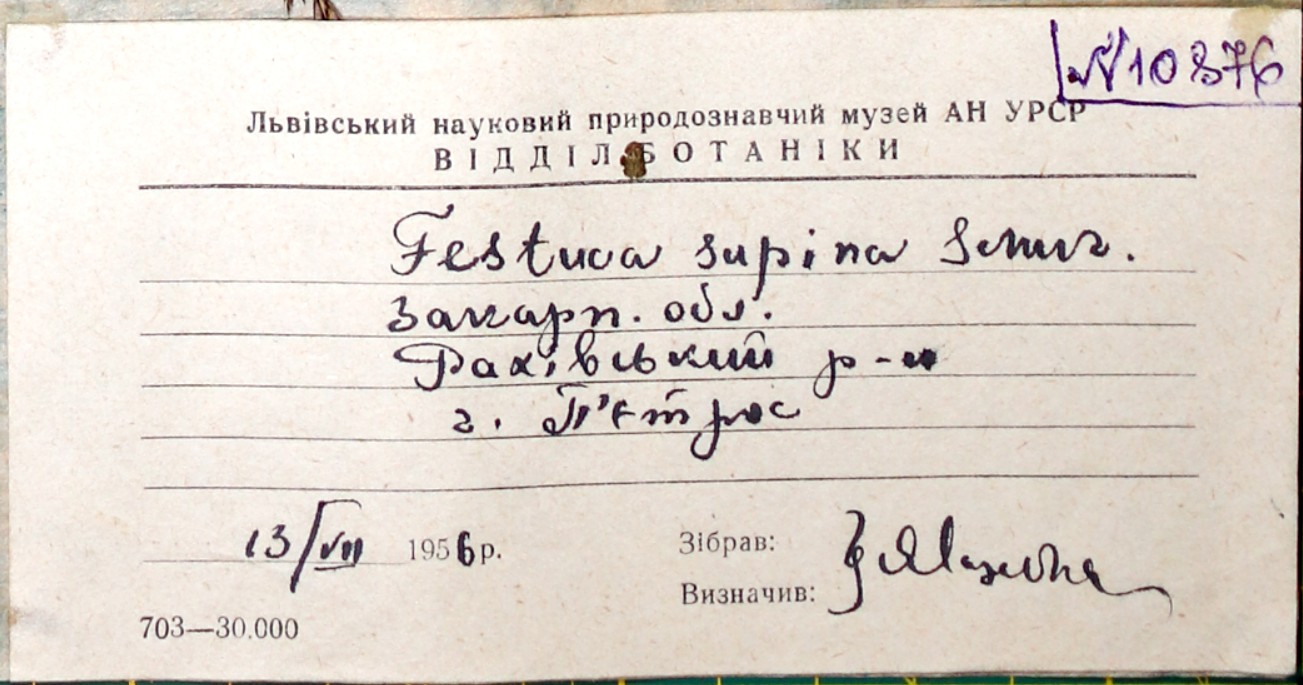 № 10876
Львівський науковий природознавчий музей АН УРСР
ВІДДІЛ БОТАНІКИ
Festuca supina Schur.
Закарп. обл.
Рахівський р-н
г. П'єтрос
13/VII 1956 р.
Зібрав:
Визначив:
703—30.000